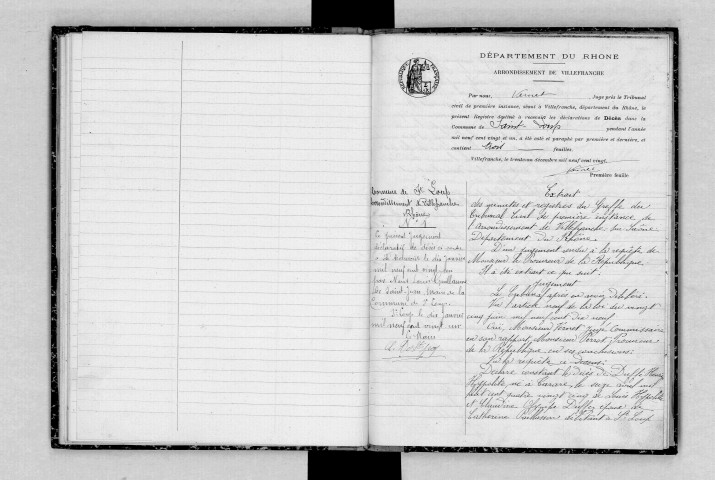 DÉPARTEMENT DU RHÔNE
ARRONDISSEMENT DE VILLEFRANCHE
Par nous, Vernet Juge près le Tribunal
civil de première instance, séant à Villefranche, département du Rhône, le
présent Registre destiné à recevoir les déclarations de Décès dans la
Commune de Saint Loup pendant l'année
mil neuf cent vingt et un, a été coté et paraphé par première et dernière, et
contient trois feuilles.
Villefranche, le trente un décembre mil neuf cent vingt.
Vernet
Première feuille
Commune de St Loup
Arrondissement de Villefranche
Rhône
Le présent jugement
déclaratif de décès
le dix janvier
mil neuf cent vingt un
par Nous
Maire de la
Commune de St Loup
St Loup le dix janvier
mil neuf cent vingt un
Le Maire
Extrait
des minutes et registres du Greffe du
tribunal civil de première instance de
l'arrondissement de Villefranche sur Saône
Département du Rhône.
D'un jugement rendu à la requête de
Monsieur le Procureur de la République
Il a été extrait ce qui suit:
Jugement
Le tribunal après en avoir délibéré.
Vu l'article neuf de la loi du vingt
cinq juin mil neuf cent dix neuf
Ouï, Monsieur Vernet Juge Commissaire
en son rapport, Monsieur Perret Procureur
de la République en ses conclusions:
Vu la requête ci dessus:
Déclare constant le décès de
Hippolyte, né à Tarare, le onze août mil
huit cent quatre vingt cinq de Louis Hippolyte
et Claudine époux de
Catherine domicilié à St Loup